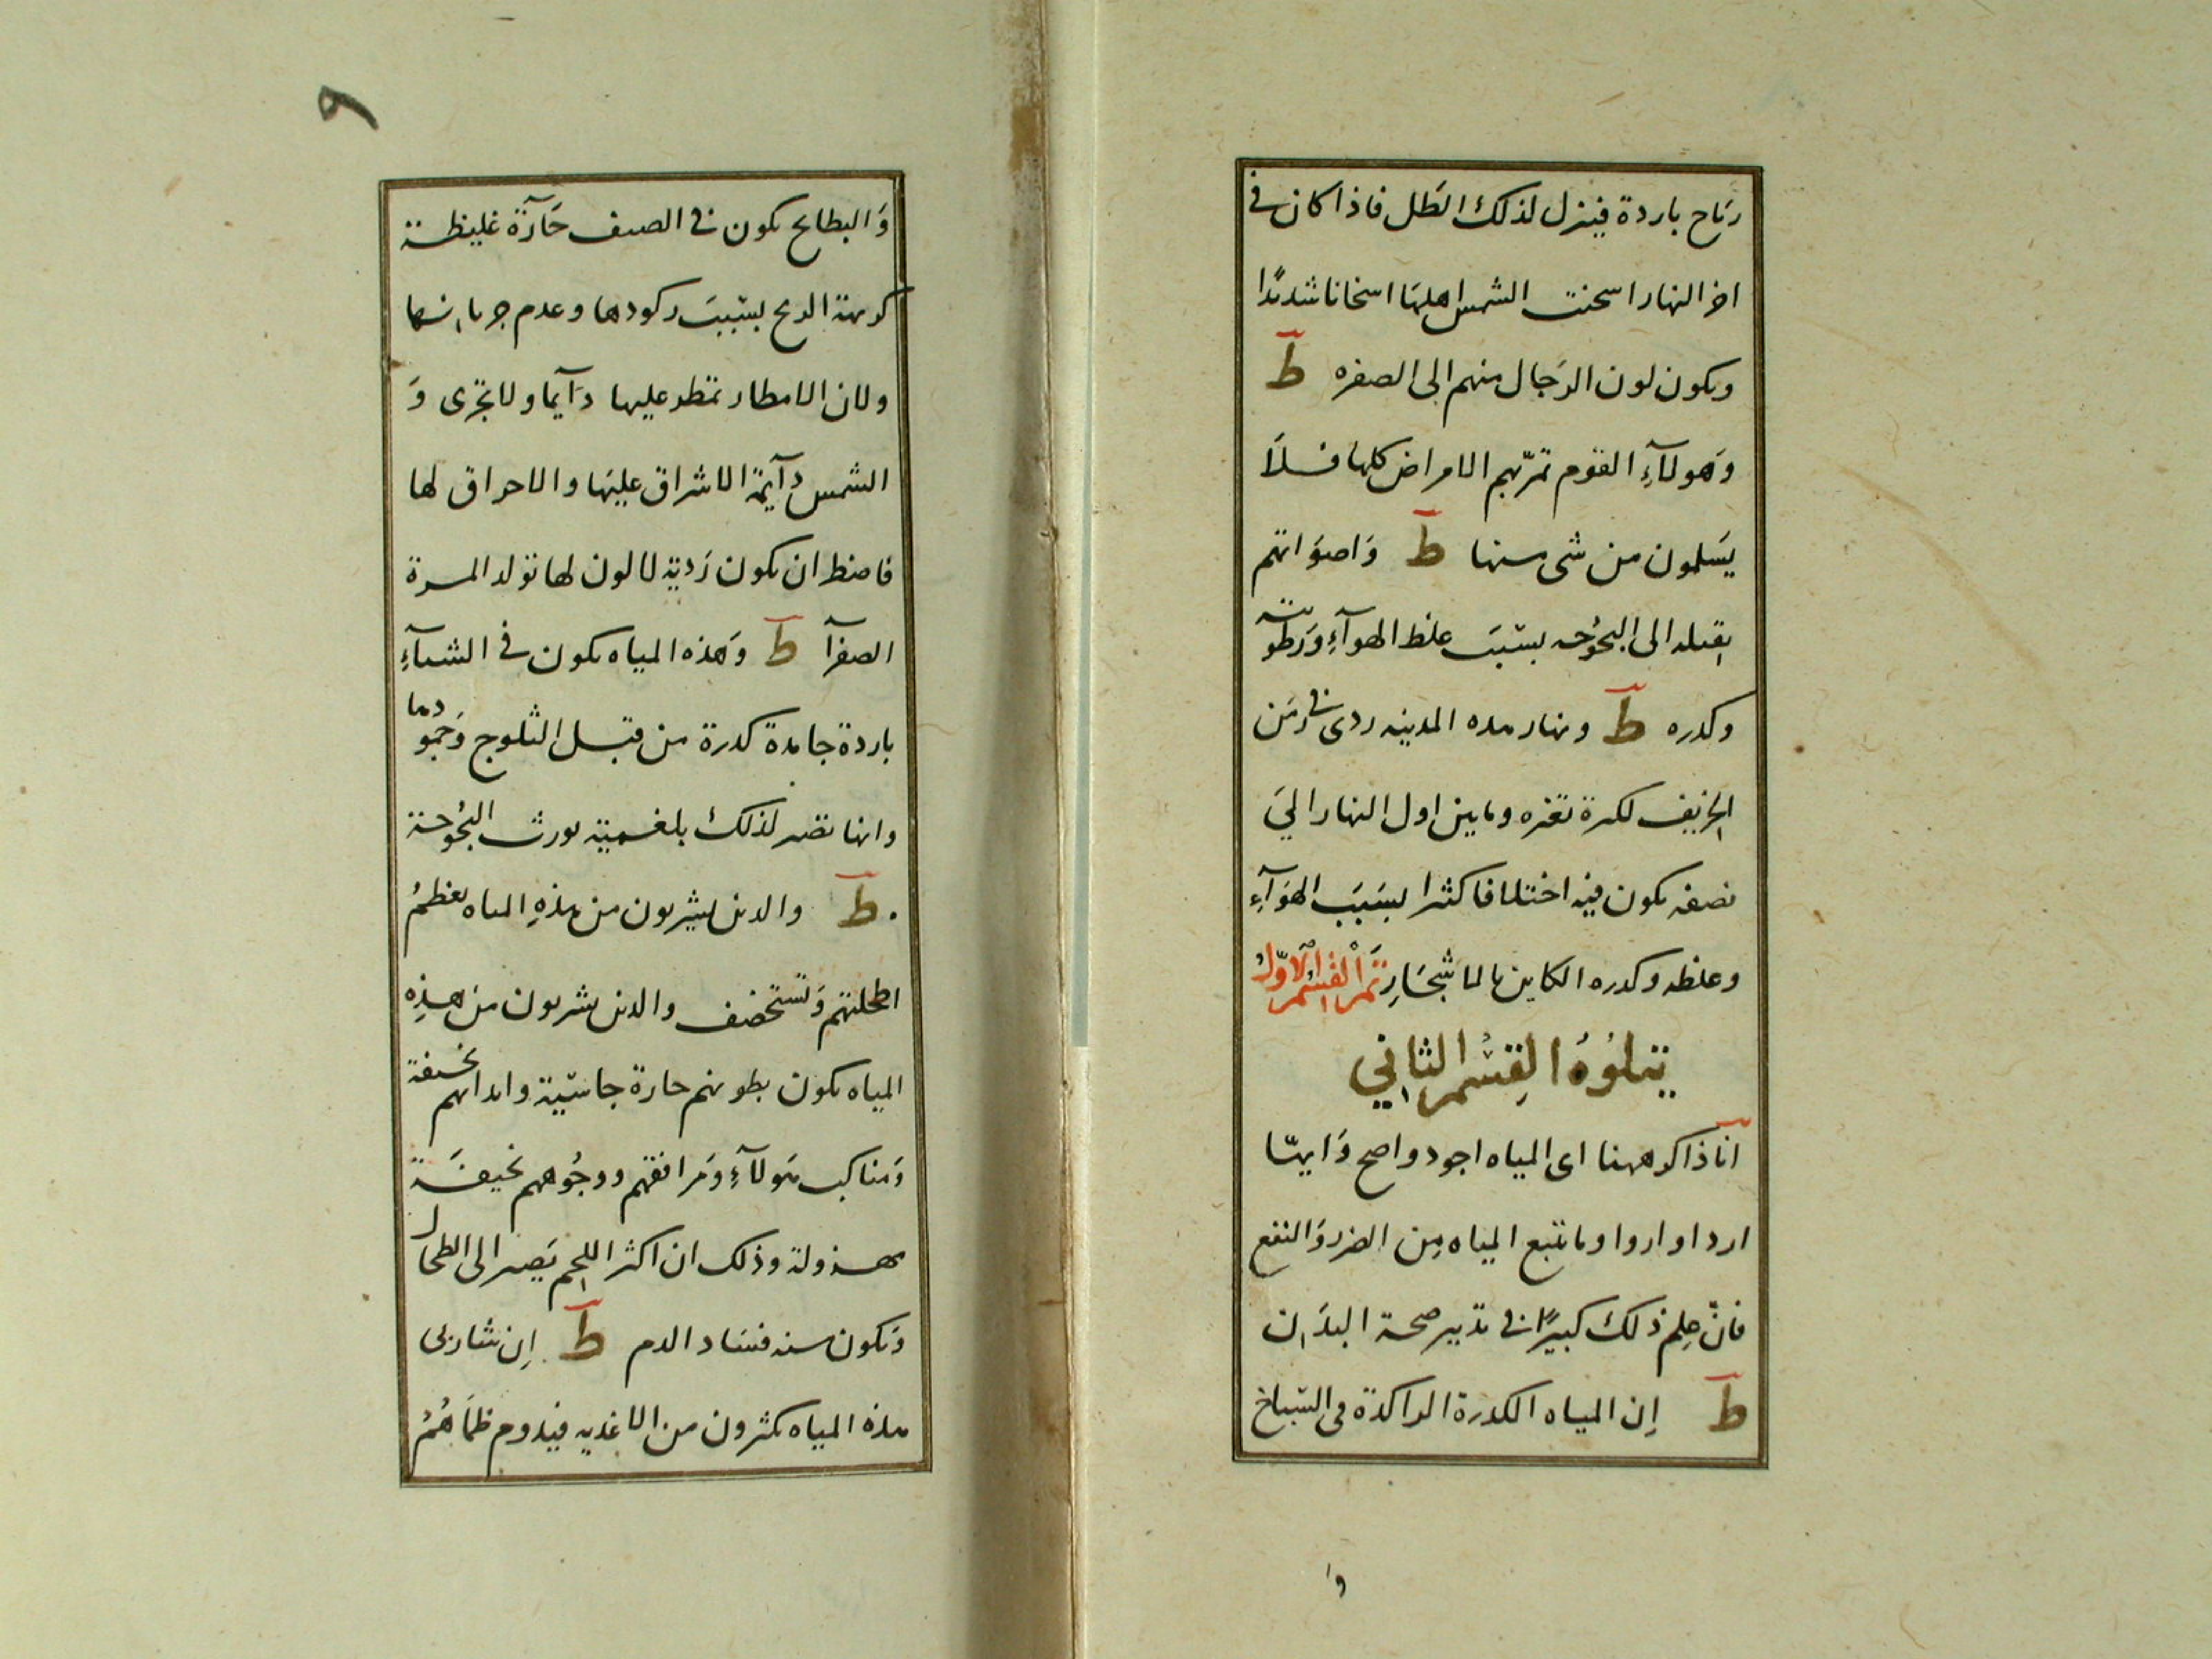 رياح باردة فينزل لذلك الطل فاذا كان في
اخر النهار اسخنت الشمس اهلها اسخانا شديدا
ويكون لون الرجال منهم الى الصفره ط
وهولآء القوم تمر بهم الامراض كلها فلا
يسلمون من شى منها ط واصواتهم
ثقيله الى البحوحه بسبب غلظ الهوآء ورطوبته
وكدره ط ونهار هذه المدينه ردى في زمن
الخريف لكثرة تغيره وما بين اول النهار الي
نصفه يكون فيه اختلافا كثيرا بسبب الهوآء
وغلظه وكدره الكاين بالاشجار تم القسم الاول
يتلوه القسم الثاني
انا ذاكر ههنا اى المياه اجود واصح وايها
اردا واروا وما يتبع المياه من الضرر والنفع
فان علم ذلك كبيرا في تدبير صحة البدان
ط إن المياه الكدرة الراكدة في السباخ
و
٩
والبطايح يكون في الصيف حآرة غليظة
كريهة الريح بسبب ركودها وعدم جريانها
ولان الامطار تمطر عليها دآيما ولا تجرى و
الشمس دآيمة الاشراق عليها والاحراق لها
فاضطر ان يكون ردية لا لون لها تولد المرة
الصفرآ ط وهذه المياه يكون في الشتآء
باردة جامدة كدرة من قبل الثلوج وجمودها
وانها تصير لذلك بلغمية يورث البحوحة
ط والذين يشربون من هذه المياه يعظم
اطحلتهم وتستخصف والذين يشربون من هذه
المياه يكون بطونهم حارة جاسية وابدانهم نحيفة
ومناكب هولآء ومرافقهم ووجوههم نحيفة
مهزولة وذلك ان اكثر اللحم يصير الى الطحال
ويكون منه فساد الدم ط إن شاربى
هذه المياه يكثرون من الاغذيه فيدوم ظماهم